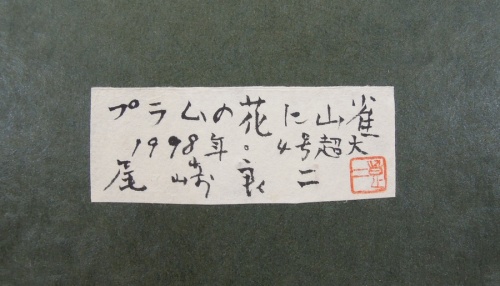 プラムの花に山雀
1998年。4号超大
尾崎良二